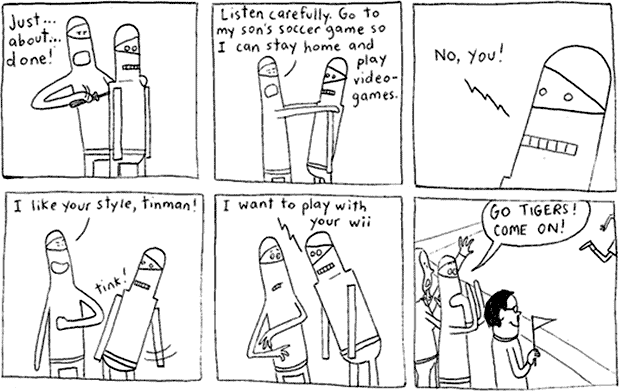 Just...
about...
done!
Listen carefully. Go to
my son's soccer game so
I can stay home and
play
video-
games.
No, you!
I like your style, tinman!
tink!
I want to play with
your wii
GO TIGERS!
COME ON!